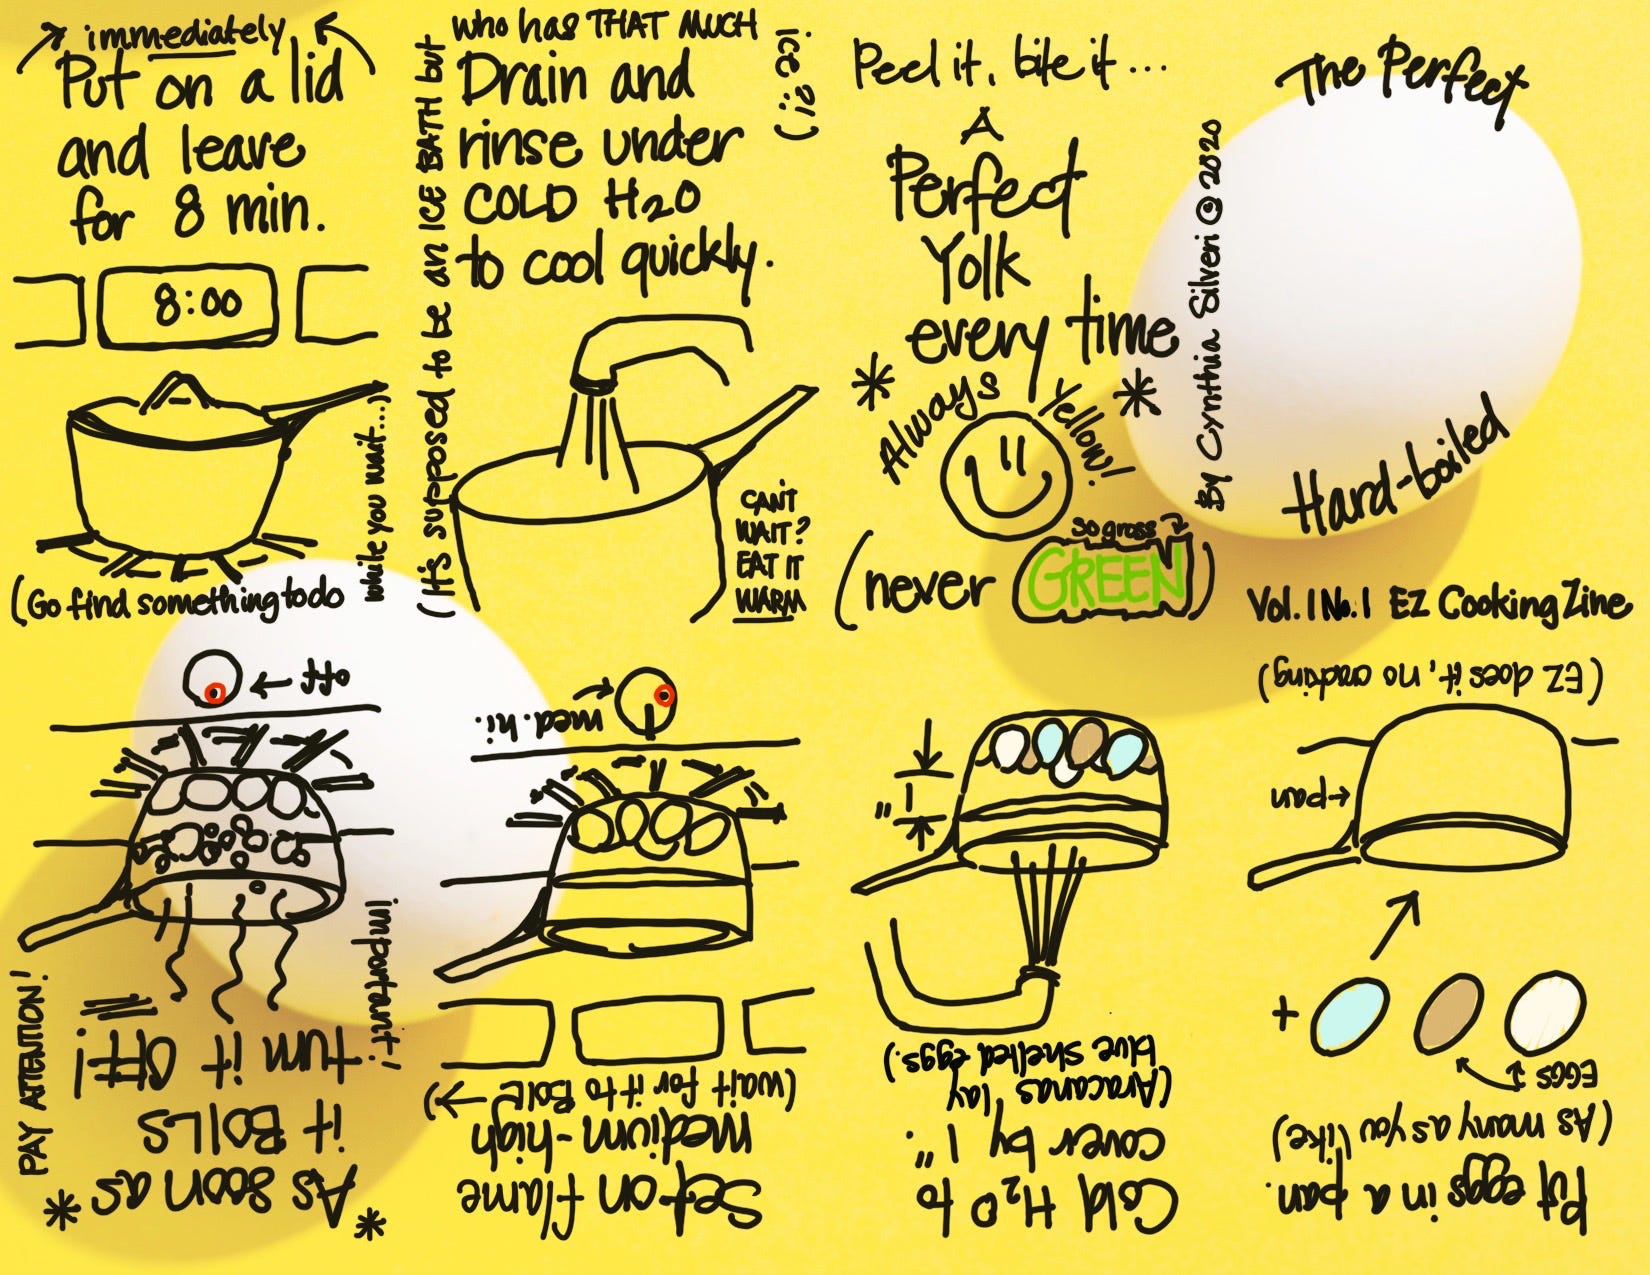 The Perfect
Hard-boiled
By Cynthia Silveri @ 2020
Vol. 1 No. 1 EZ Cooking Zine
Put eggs in a pan.
(As many as you like)
EGGS
+
pan
(EZ does it, no cracking)
Cold H2O to
cover by 1".
(Aracanas lay
blue shelled eggs.)
1"
Set on flame
medium-high
(wait for it to BOIL →)
med. hi.
* As soon as *
it BOILS
turn it OFF!
important!
PAY ATTENTION!
off
immediately
Put on a lid
and leave
for 8 min.
8:00
(Go find something to do
while you wait...)
Drain and
rinse under
COLD H2O
to cool quickly.
(It's supposed to be an ICE BATH but
who has THAT MUCH
ice?!)
CAN'T
WAIT?
EAT IT
WARM
Peel it, bite it...
A
Perfect
Yolk
every time
* Always Yellow! *
so gross
(never GREEN)